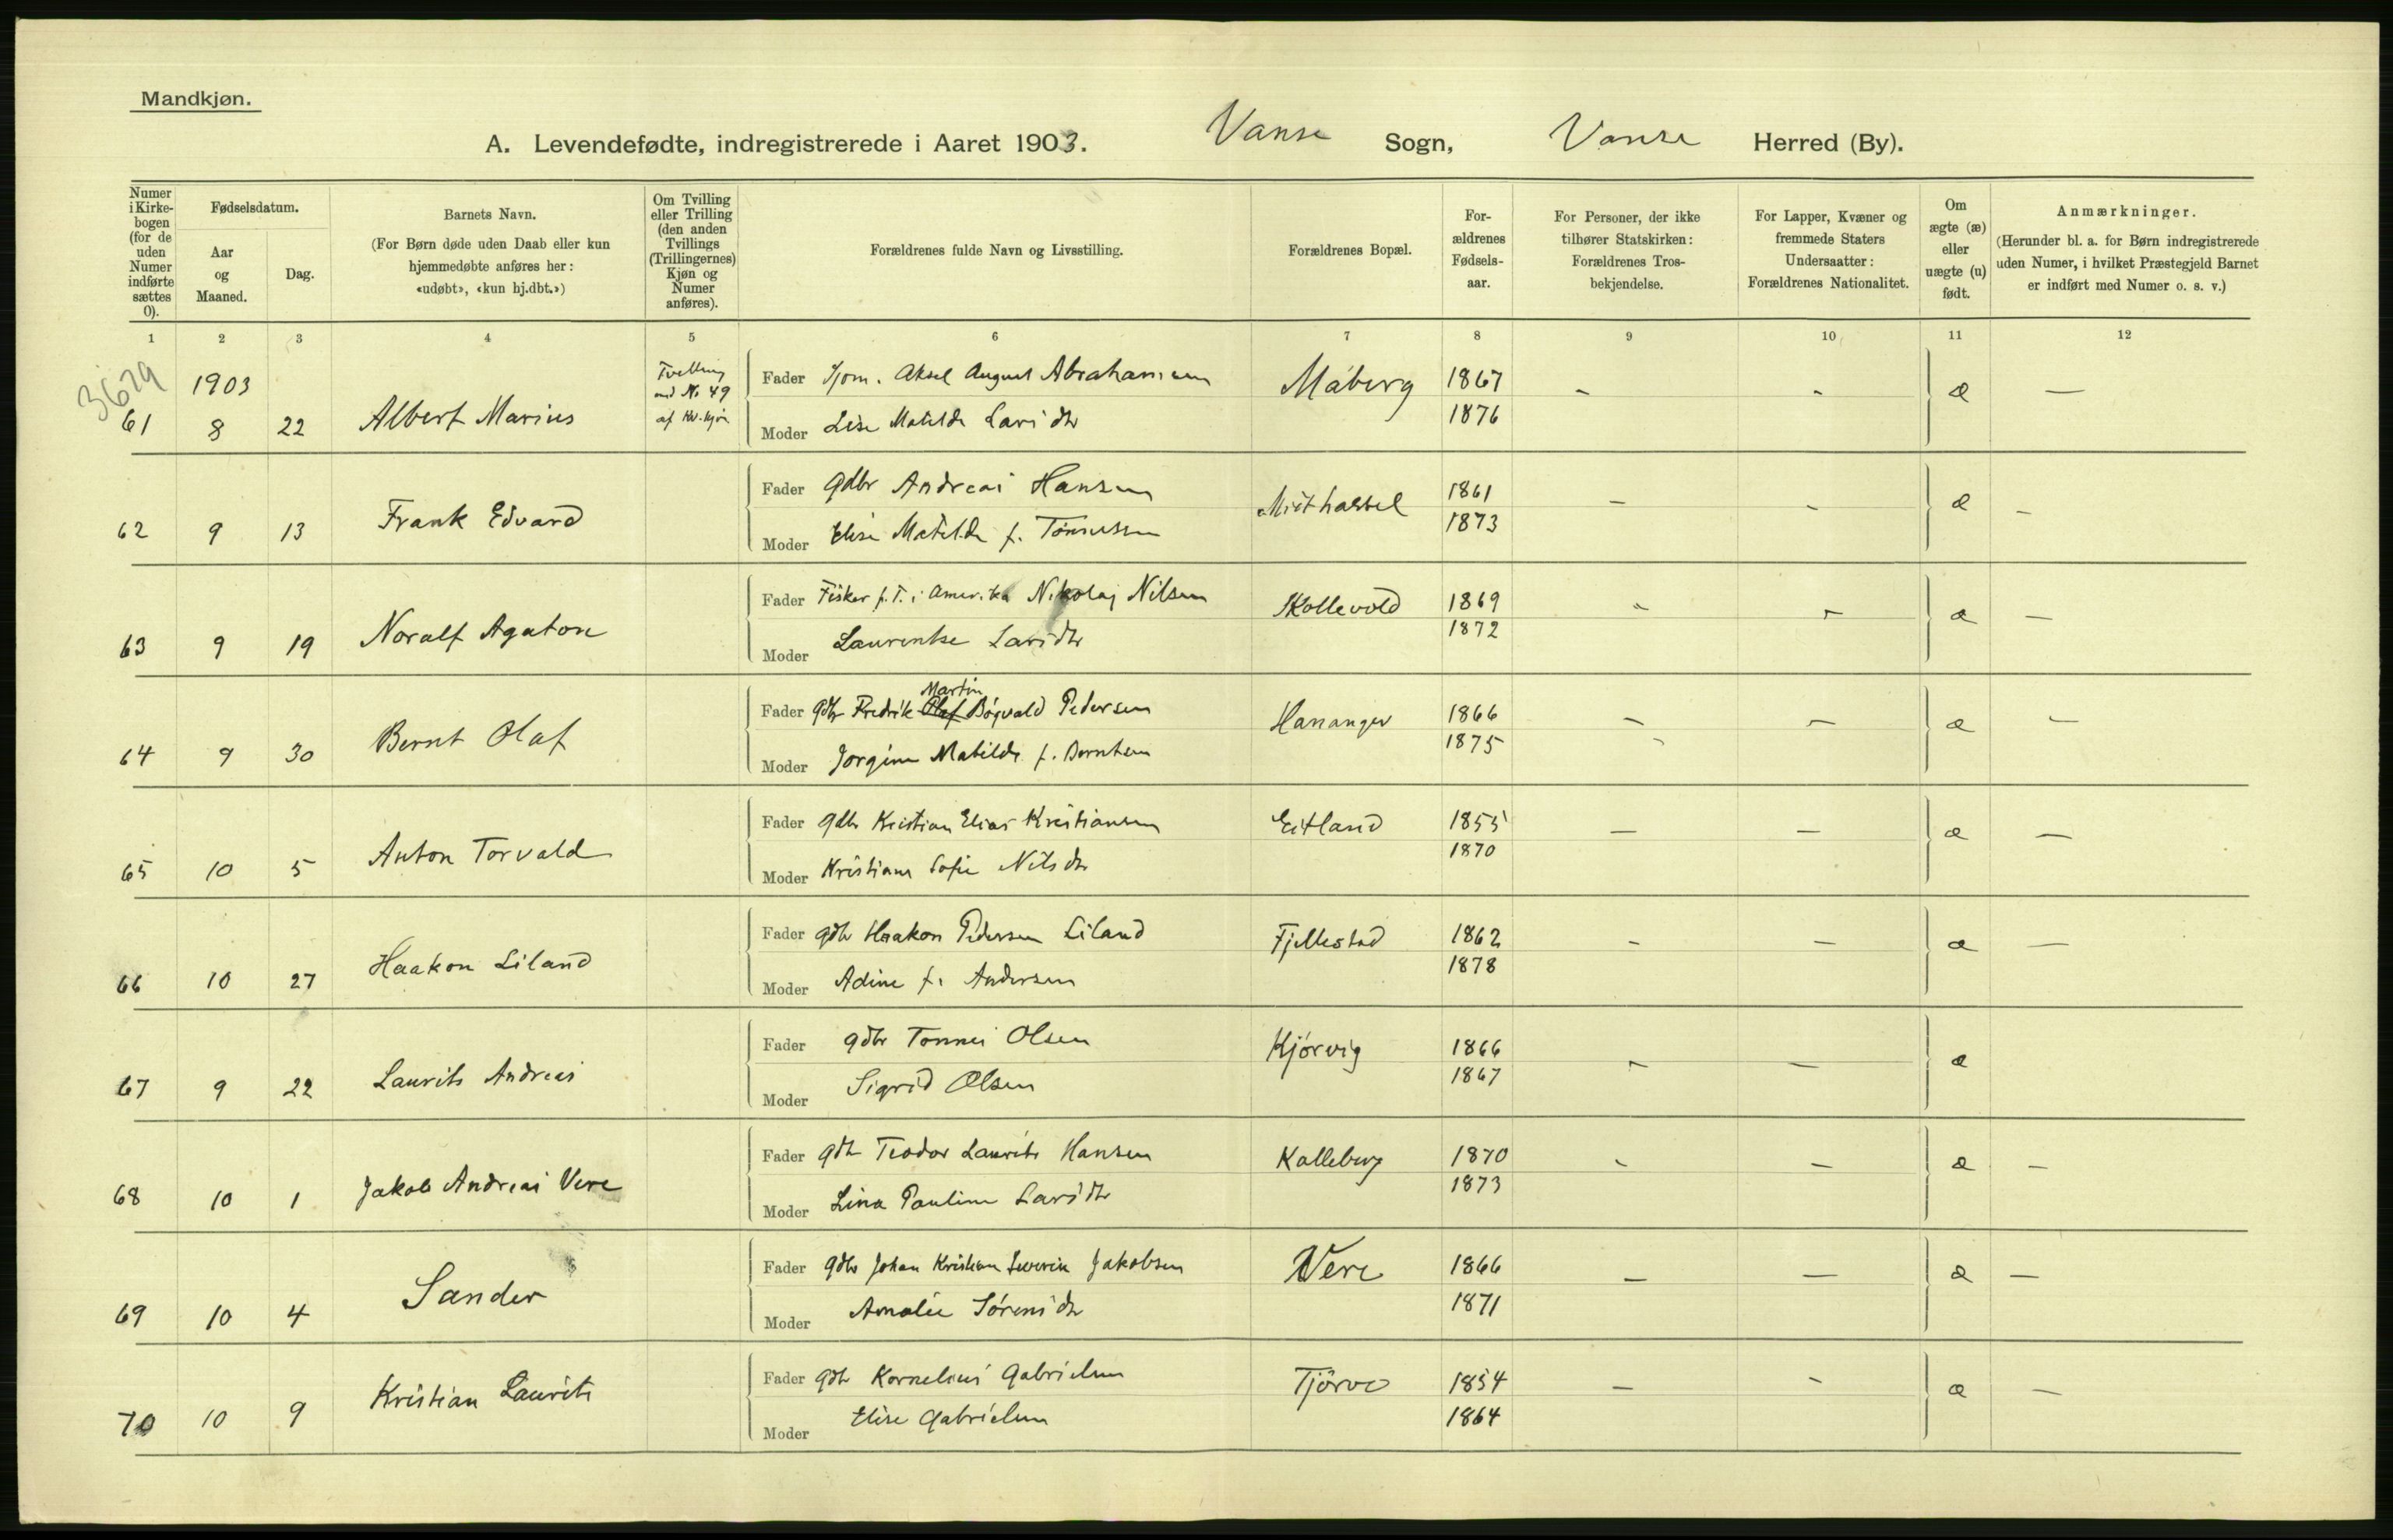 Mandkjøn.
A. Levendefødte, indregistrerede i Aaret 1903. Vanse Sogn, Vanse Herred (By).
Numer i Kirkebogen (for de uden Numer indførte sættes 0).
Fødselsdatum.
Aar og Maaned.
Dag.
Barnets Navn.
(For Børn døde uden Daab eller kun hjemmedøbte anføres her: «udøbt», «kun hj.dbt.»)
Om Tvilling eller Trilling (den anden Tvillings (Trillingernes) Kjøn og Numer anføres).
Forældrenes fulde Navn og Livsstilling.
Forældrenes Bopæl.
Forældrenes Fødselsaar.
For Personer, der ikke tilhører Statskirken: Forældrenes Trosbekjendelse.
For Lapper, Kvæner og fremmede Staters Undersaatter: Forældrenes Nationalitet.
Om ægte (æ) eller uægte (u) født.
Anmærkninger.
(Herunder bl. a. for Børn indregistrerede uden Numer, i hvilket Præstegjeld Barnet er indført med Numer o. s. v.)
1 2 3 4 5 6 7 8 9 10 11 12
3629
1903
Tvilling
med No 49
af Kv.kjøn
Fader Sjøm. Aksel August Abrahamsen Måberg 1867 - - æ —
61 8 22 Albert Marius
Moder Lise Matilde Larsdtr 1876
Fader Gdbr Andreas Hansen Midthassel 1861 - - æ -
62 9 13 Frank Edvard
Moder Elise Matilde f. Tønnesen 1873
Fader Fisker p.T. i Amerika Nikolaj Nilsen Skollevold 1869 - - æ —
63 9 19 Noralf Agaton
Moder Laurentse Larsdtr 1872
Martin
Fader Gdbr Fredrik Olaf Bøgvald Pedersen Hananger 1866 - - æ -
64 9 30 Bernt Olaf
Moder Jørgine Matilde f. Berntsen 1875
Fader Gdbr Kristian Elias Kristiansen Eitland 1855 — — æ —
65 10 5 Anton Torvald
Moder Kristiane Sofie Nilsdtr 1870
Fader Gdbr Haakon Pedersen Liland Fjellestad 1862 - — æ —
66 10 27 Haakon Liland
Moder Adine f. Andersen 1878
Fader Gdbr Tønnes Olsen Kjørvig 1866 - — æ
67 9 22 Laurits Andreas
Moder Sigrid Olsen 1867
Fader Gdbr Teodor Laurits Hansen Kalleberg 1870 - — æ -
68 10 1 Jakob Andreas Vere
Moder Lina Pauline Larsdtr 1873
Fader Gdbr Johan Kristian Severin Jakobsen Vere 1866 — — æ —
69 10 4 Sander
Moder Amalie Sørensdtr 1871
Fader Gdbr Kornelius Gabrielsen Tjørve 1854 — - æ —
70 10 9 Kristian Laurits
Moder Elise Gabrielsen 1864